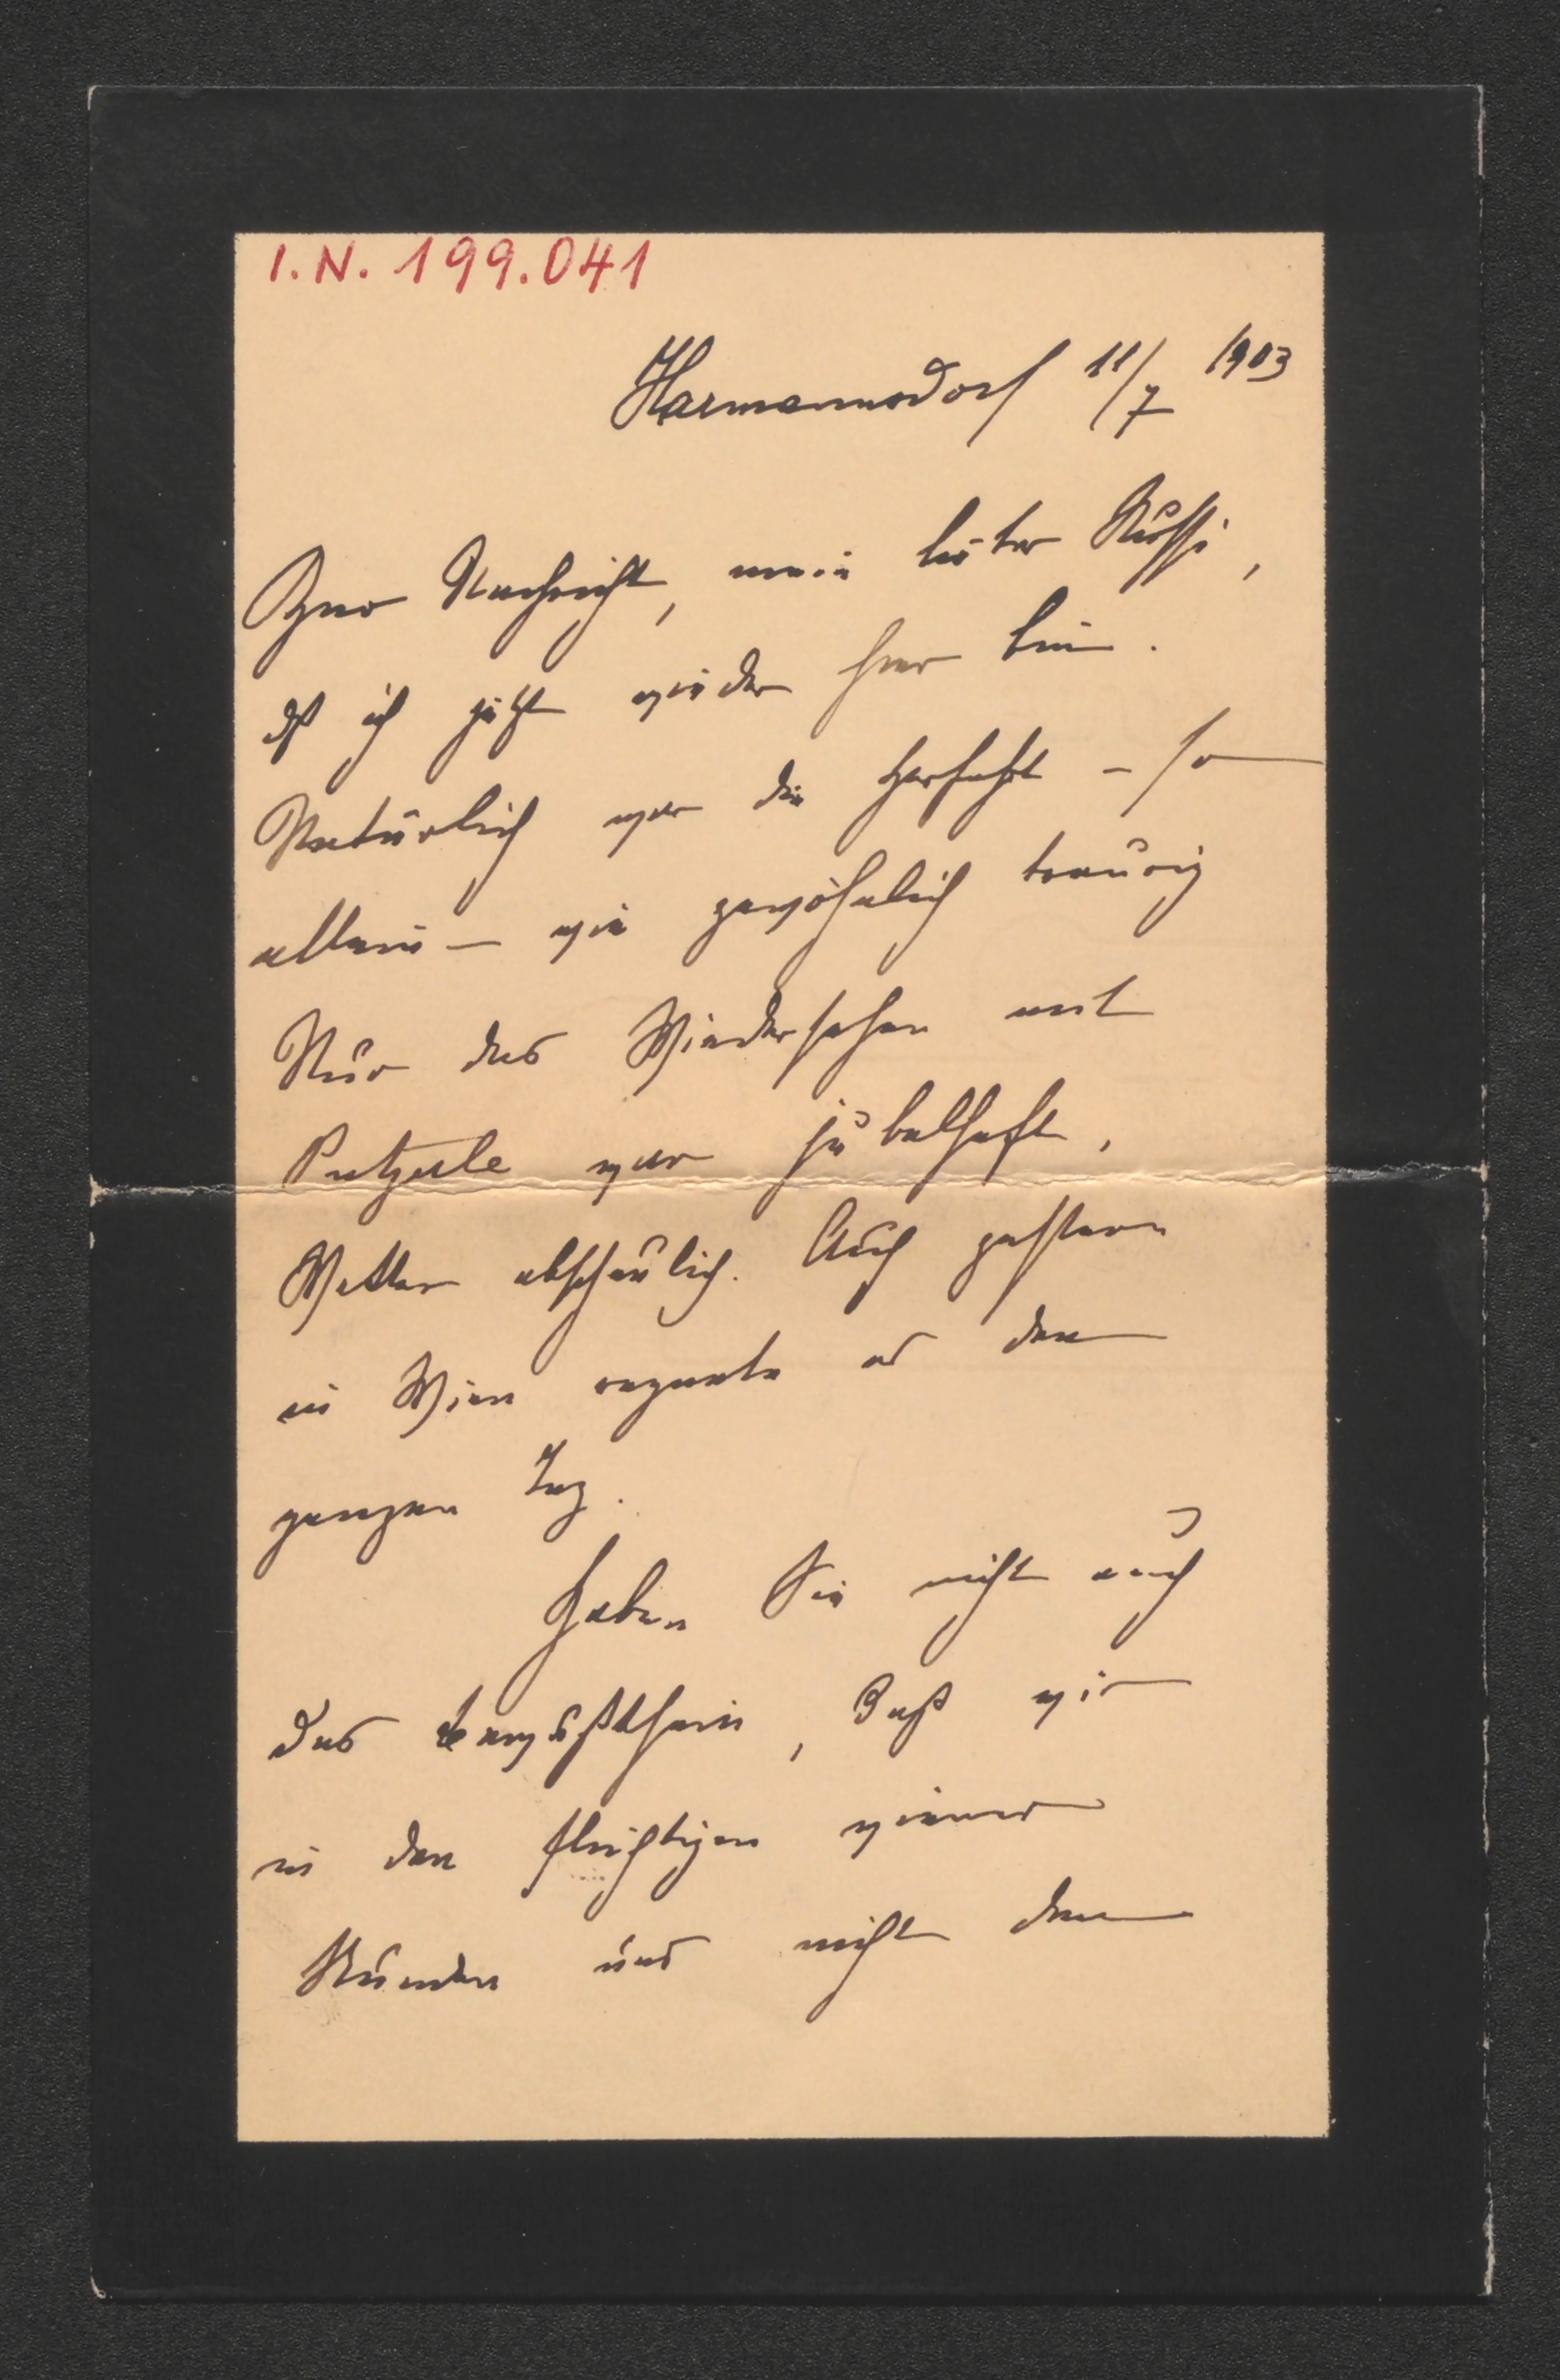 I. N. 199.041
Harmannsdorf 11/7 1903
Zur Nachricht, mein lieber Russi,
dß ich jetzt wieder hier bin.
Natürlich war die Herfahrt – so
allein – wie gewöhnlich traurig
Nur das Wiedersehen mit
Putzerle war jubelhaft,
Wetter abscheulich. Auch gestern
in Wien regnete es den
ganzen Tag.
Haben Sie nicht auch
das bewußtsein, daß wir
in den flüchtigen wiener
Stunden uns nicht den